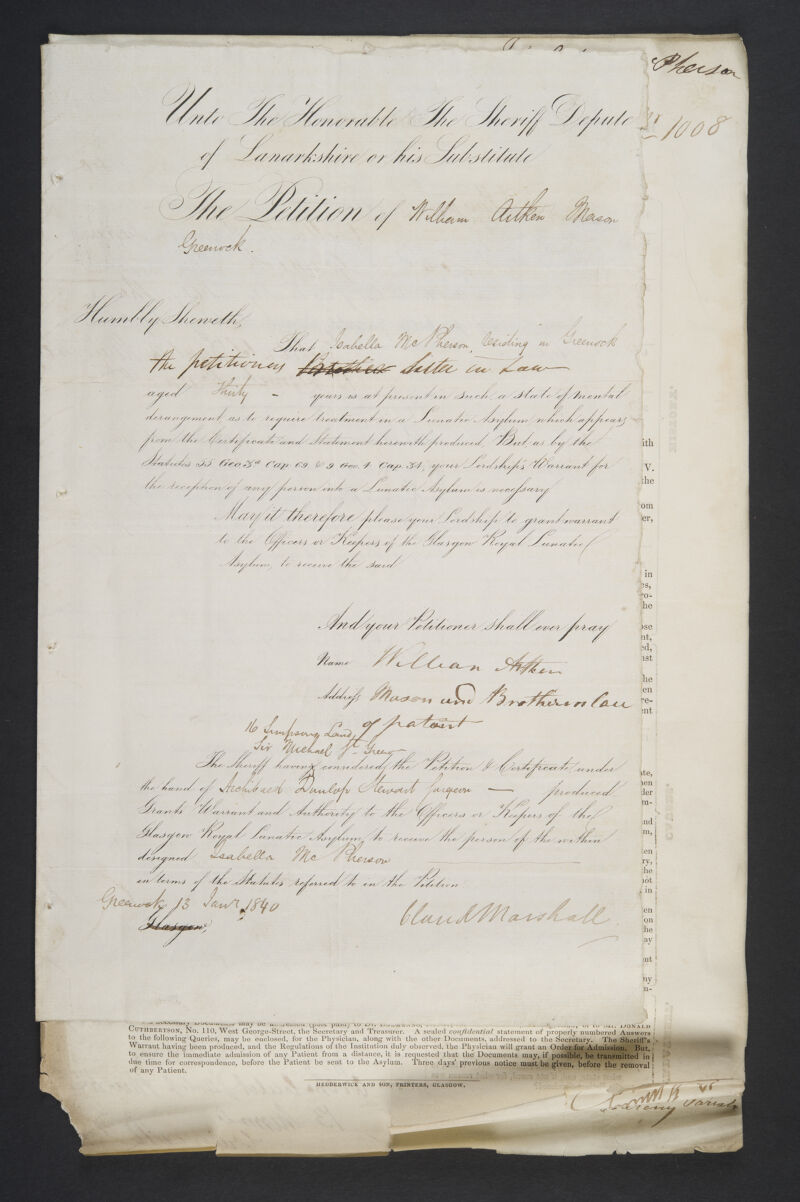 Pherson
1008
Unto The Honorable The Sheriff Depute
of Lanarkshire or his Substitute
The Petition of William Aitken Mason
Greenock.
Humbly Sheweth,
That Isabella McPherson, residing in Greenock
the petitioners Brother Sister in Law
aged thirty - years is at present in such a state of mental
derangement as to require treatment in a Lunatic Asylum which appears
from the Certificate and Statement herewith produced. But as by the
Statutes 55 Geo. 3d Cap. 69 & 9 Geo. 4 Cap. 34, your Lordship's Warrant for
the reception of any person into a Lunatic Asylum is necessary
May it therefore please your Lordship to grant warrant
to the Officers or Keepers of the Glasgow Royal Lunatic
Asylum, to receive the said
And your Petitioner shall ever pray
Name William Aitken
Address Mason and Brother in law
of patient
16 Simpsons Land,
Sir Michael St. Greenock
The Sheriff having considered the Petition & Certificate under
the hand of Archibald Dunlop Stewart Surgeon — produced
Grants Warrant and Authority to the Officers or Keepers of the
Glasgow Royal Lunatic Asylum, to receive the person of the within
designed Isabella McPherson
in terms of the Statutes referred to in the Petition
Greenock 13 Janr. 1840
Glasgow,
Claud Marshall
ith
V.
the
om
er,
in
es,
ro-
he
ose
nt,
ed,
ist
he
en
re-
ent
ate,
hen
der
m-
nd
m,
en
ry,
he
not
in
en
on
he
ay
ut
ny
n-
CUTHBERTSON, No. 110, West George-Street, the Secretary and Treasurer. A sealed confidential statement of properly numbered Answers
to the following Queries, may be enclosed, for the Physician, along with the other Documents, addressed to the Secretary. The Sheriff's
Warrant having been produced, and the Regulations of the Institution duly observed, the Physician will grant an Order for Admission. But,
to ensure the immediate admission of any Patient from a distance, it is requested that the Documents may, if possible, be transmitted in
due time for correspondence, before the Patient be sent to the Asylum. Three days' previous notice must be given, before the removal
of any Patient.
HEDDERWICK AND SON, PRINTERS, GLASGOW.